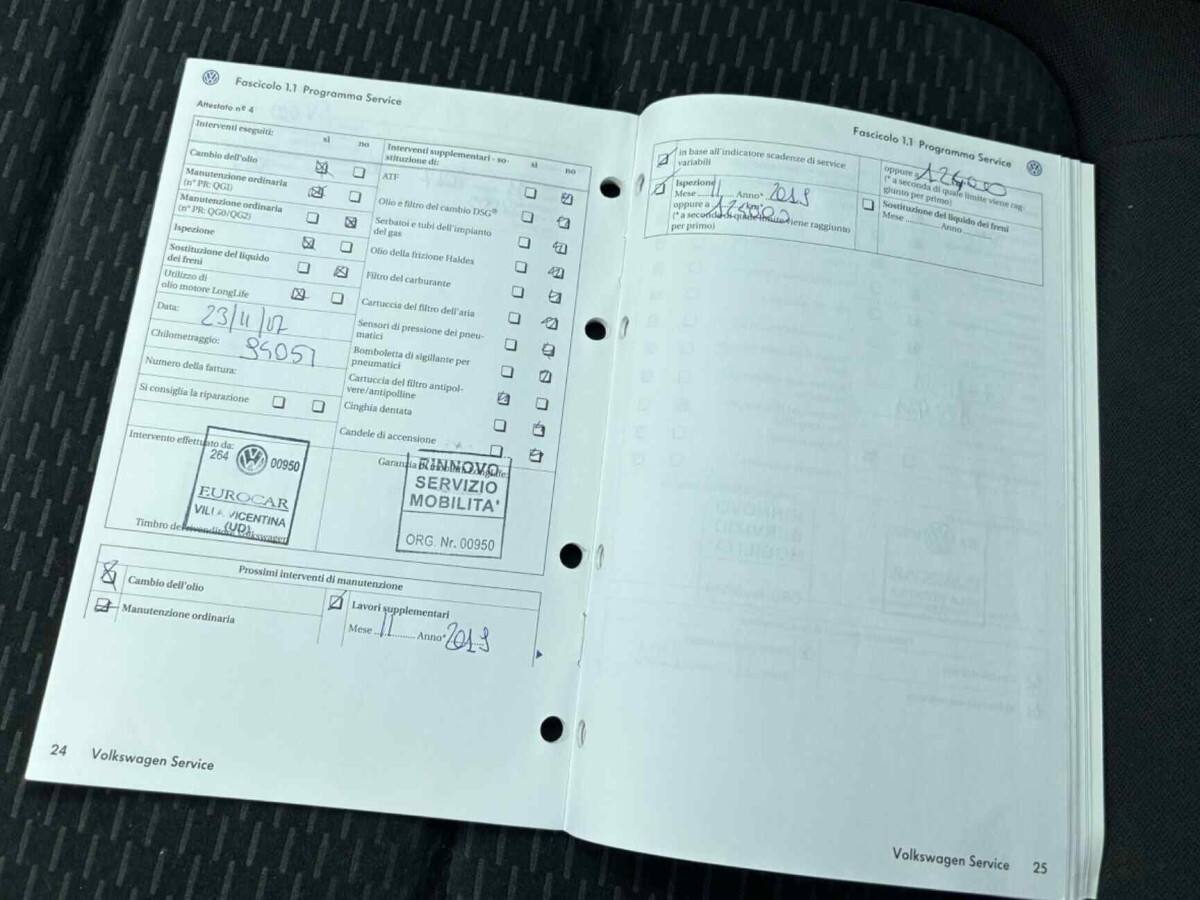 Fascicolo 1.1 Programma Service
Attestato nº 4
Interventi eseguiti:
sì no
Cambio dell'olio
Manutenzione ordinaria
(nº PR: QG1)
Manutenzione ordinaria
(nº PR: QG0/QG2)
Ispezione
Sostituzione del liquido
dei freni
Utilizzo di
olio motore LongLife
Data: 23/11/17
Chilometraggio: 94051
Numero della fattura:
Si consiglia la riparazione
Interventi supplementari - so-
stituzione di:
sì no
ATF
Olio e filtro del cambio DSG®
Serbatoi e tubi dell'impianto
del gas
Olio della frizione Haldex
Filtro del carburante
Cartuccia del filtro dell'aria
Sensori di pressione dei pneu-
matici
Bomboletta di sigillante per
pneumatici
Cartuccia del filtro antipol-
vere/antipolline
Cinghia dentata
Candele di accensione
Intervento effettuato da:
264 00950
EUROCAR
VILLA VICENTINA
(UD)
Timbro del rivenditore Volkswagen
Garanzia LongLife:
RINNOVO
SERVIZIO
MOBILITA'
ORG. Nr. 00950
Prossimi interventi di manutenzione
Cambio dell'olio
Manutenzione ordinaria
Lavori supplementari
Mese 11 Anno* 2019
24 Volkswagen Service
Fascicolo 1.1 Programma Service
in base all'indicatore scadenze di service
variabili
Ispezione
Mese 11 Anno* 2019
oppure a km:
(* a seconda di quale limite viene raggiunto
per primo)
oppure a
(* a seconda di quale limite viene rag-
giunto per primo)
Sostituzione del liquido dei freni
Mese ........... Anno ...........
Volkswagen Service 25